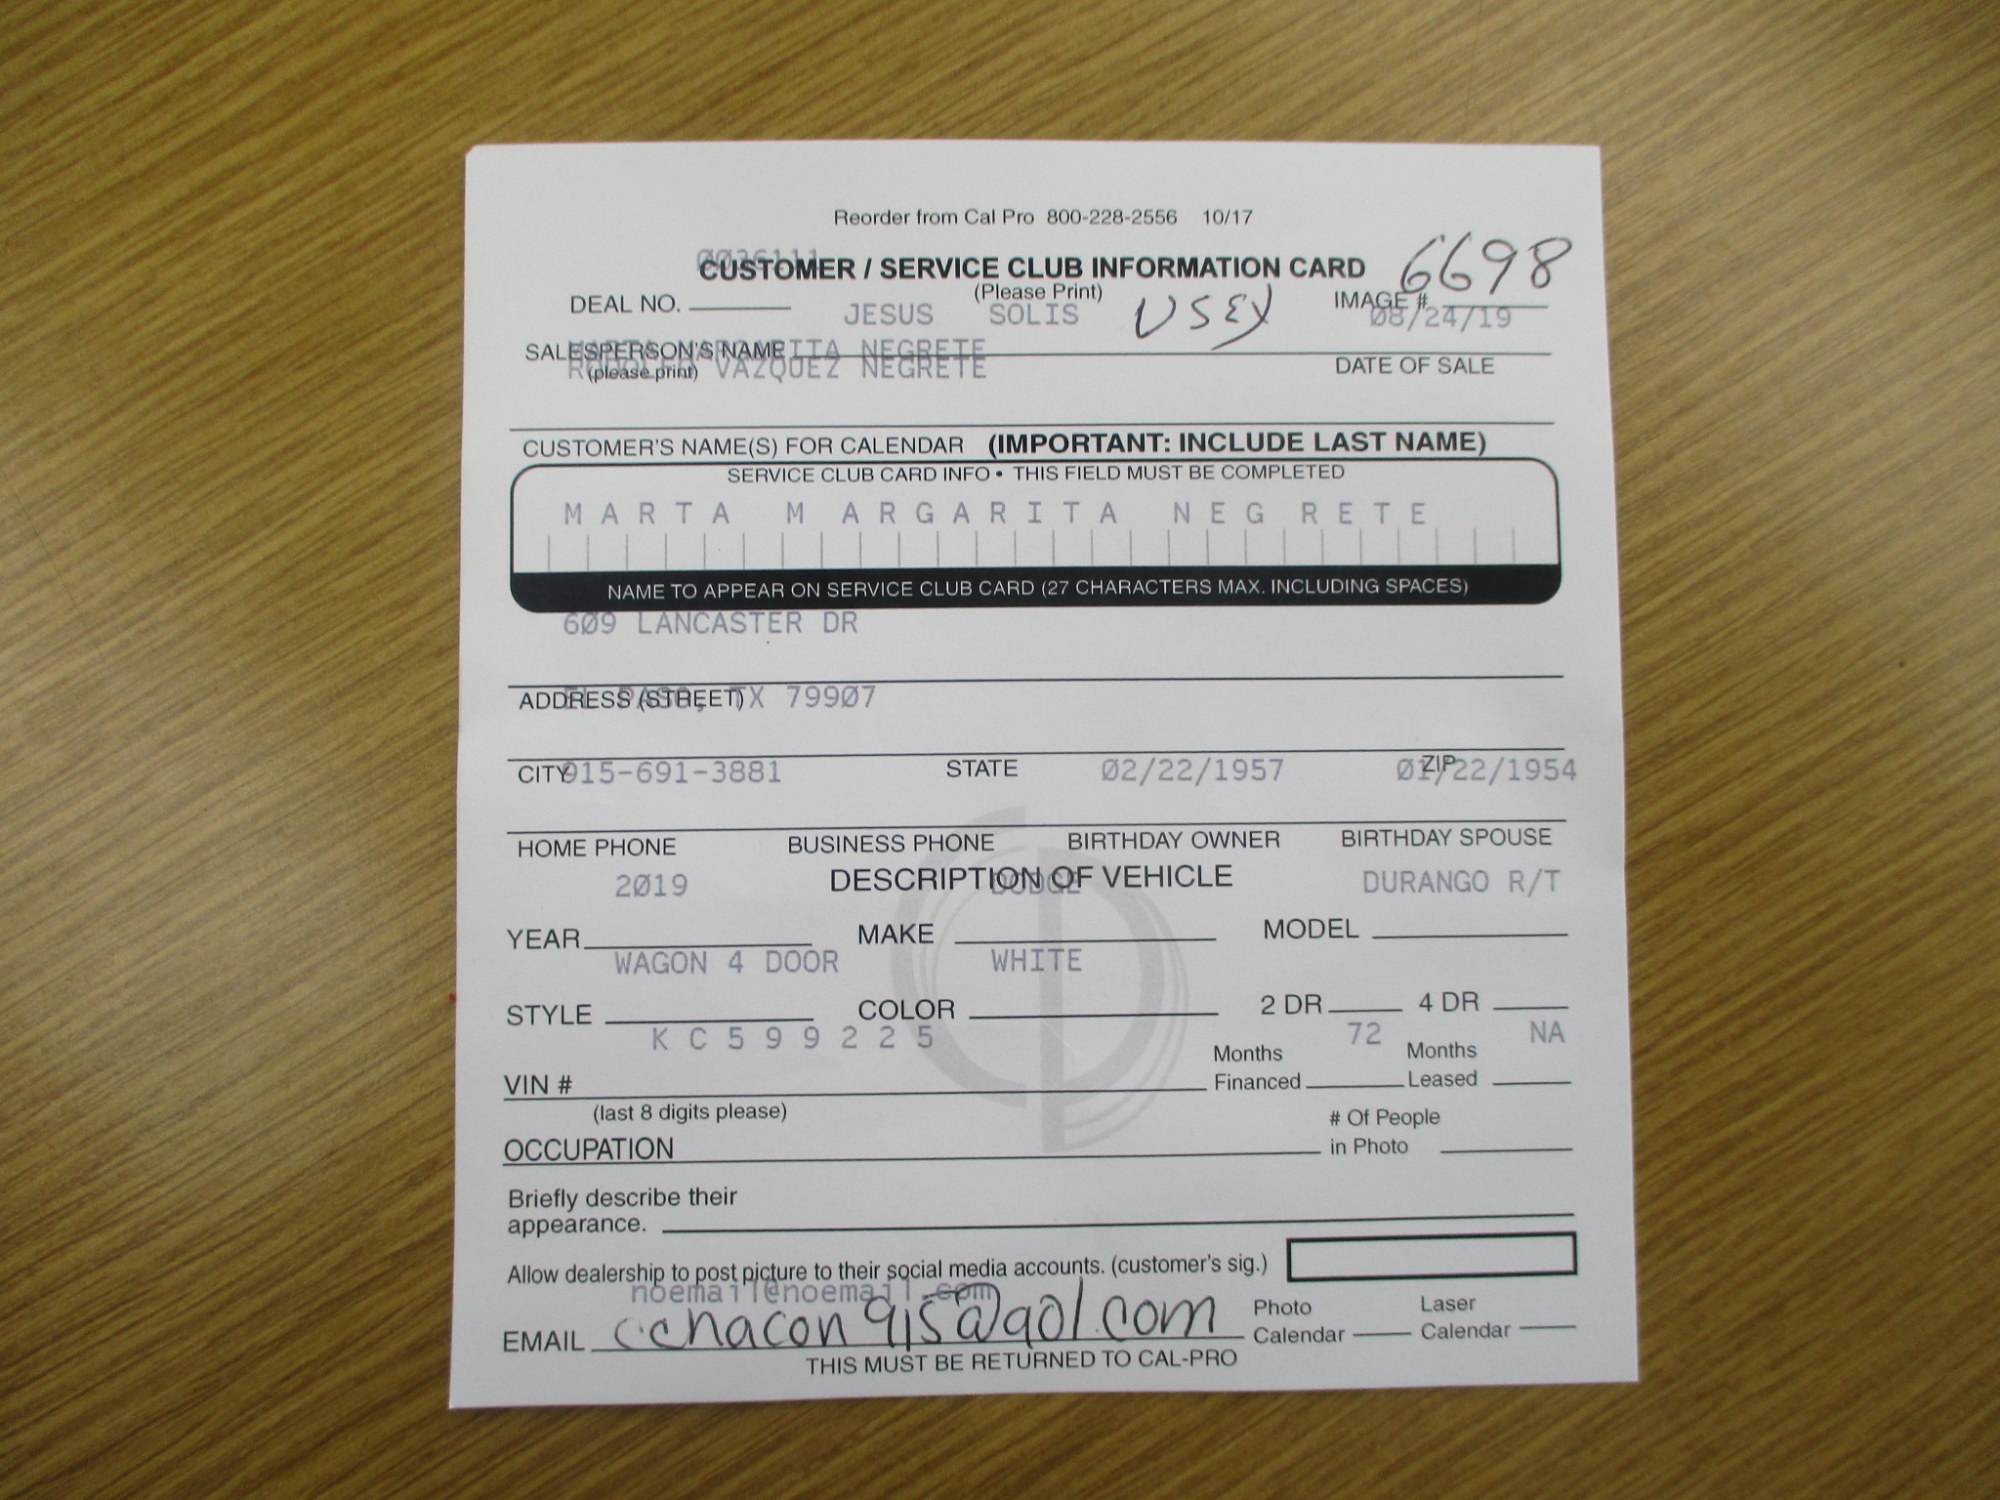 Reorder from Cal Pro 800-228-2556 10/17
0036111
CUSTOMER / SERVICE CLUB INFORMATION CARD 6698
(Please Print)
DEAL NO. JESUS SOLIS IMAGE # 08/24/19
SALESPERSON'S NAME MARTA MARGARITA NEGRETE
(please print) VAZQUEZ NEGRETE DATE OF SALE
CUSTOMER'S NAME(S) FOR CALENDAR (IMPORTANT: INCLUDE LAST NAME)
SERVICE CLUB CARD INFO • THIS FIELD MUST BE COMPLETED
MARTA MARGARITA NEGRETE
NAME TO APPEAR ON SERVICE CLUB CARD (27 CHARACTERS MAX. INCLUDING SPACES)
609 LANCASTER DR
ADDRESS (STREET) EL PASO, TX 79907
CITY 915-691-3881 STATE 02/22/1957 ZIP 01/22/1954
HOME PHONE BUSINESS PHONE BIRTHDAY OWNER BIRTHDAY SPOUSE
2019 DESCRIPTION OF VEHICLE DODGE DURANGO R/T
YEAR MAKE MODEL
WAGON 4 DOOR WHITE
STYLE COLOR 2 DR 4 DR
KC599225 72 NA
VIN # Months Financed Months Leased
(last 8 digits please)
OCCUPATION # Of People in Photo
Briefly describe their
appearance.
Allow dealership to post picture to their social media accounts. (customer's sig.)
noemail@noemail.com
EMAIL cchacon915@aol.com Photo Calendar Laser Calendar
THIS MUST BE RETURNED TO CAL-PRO